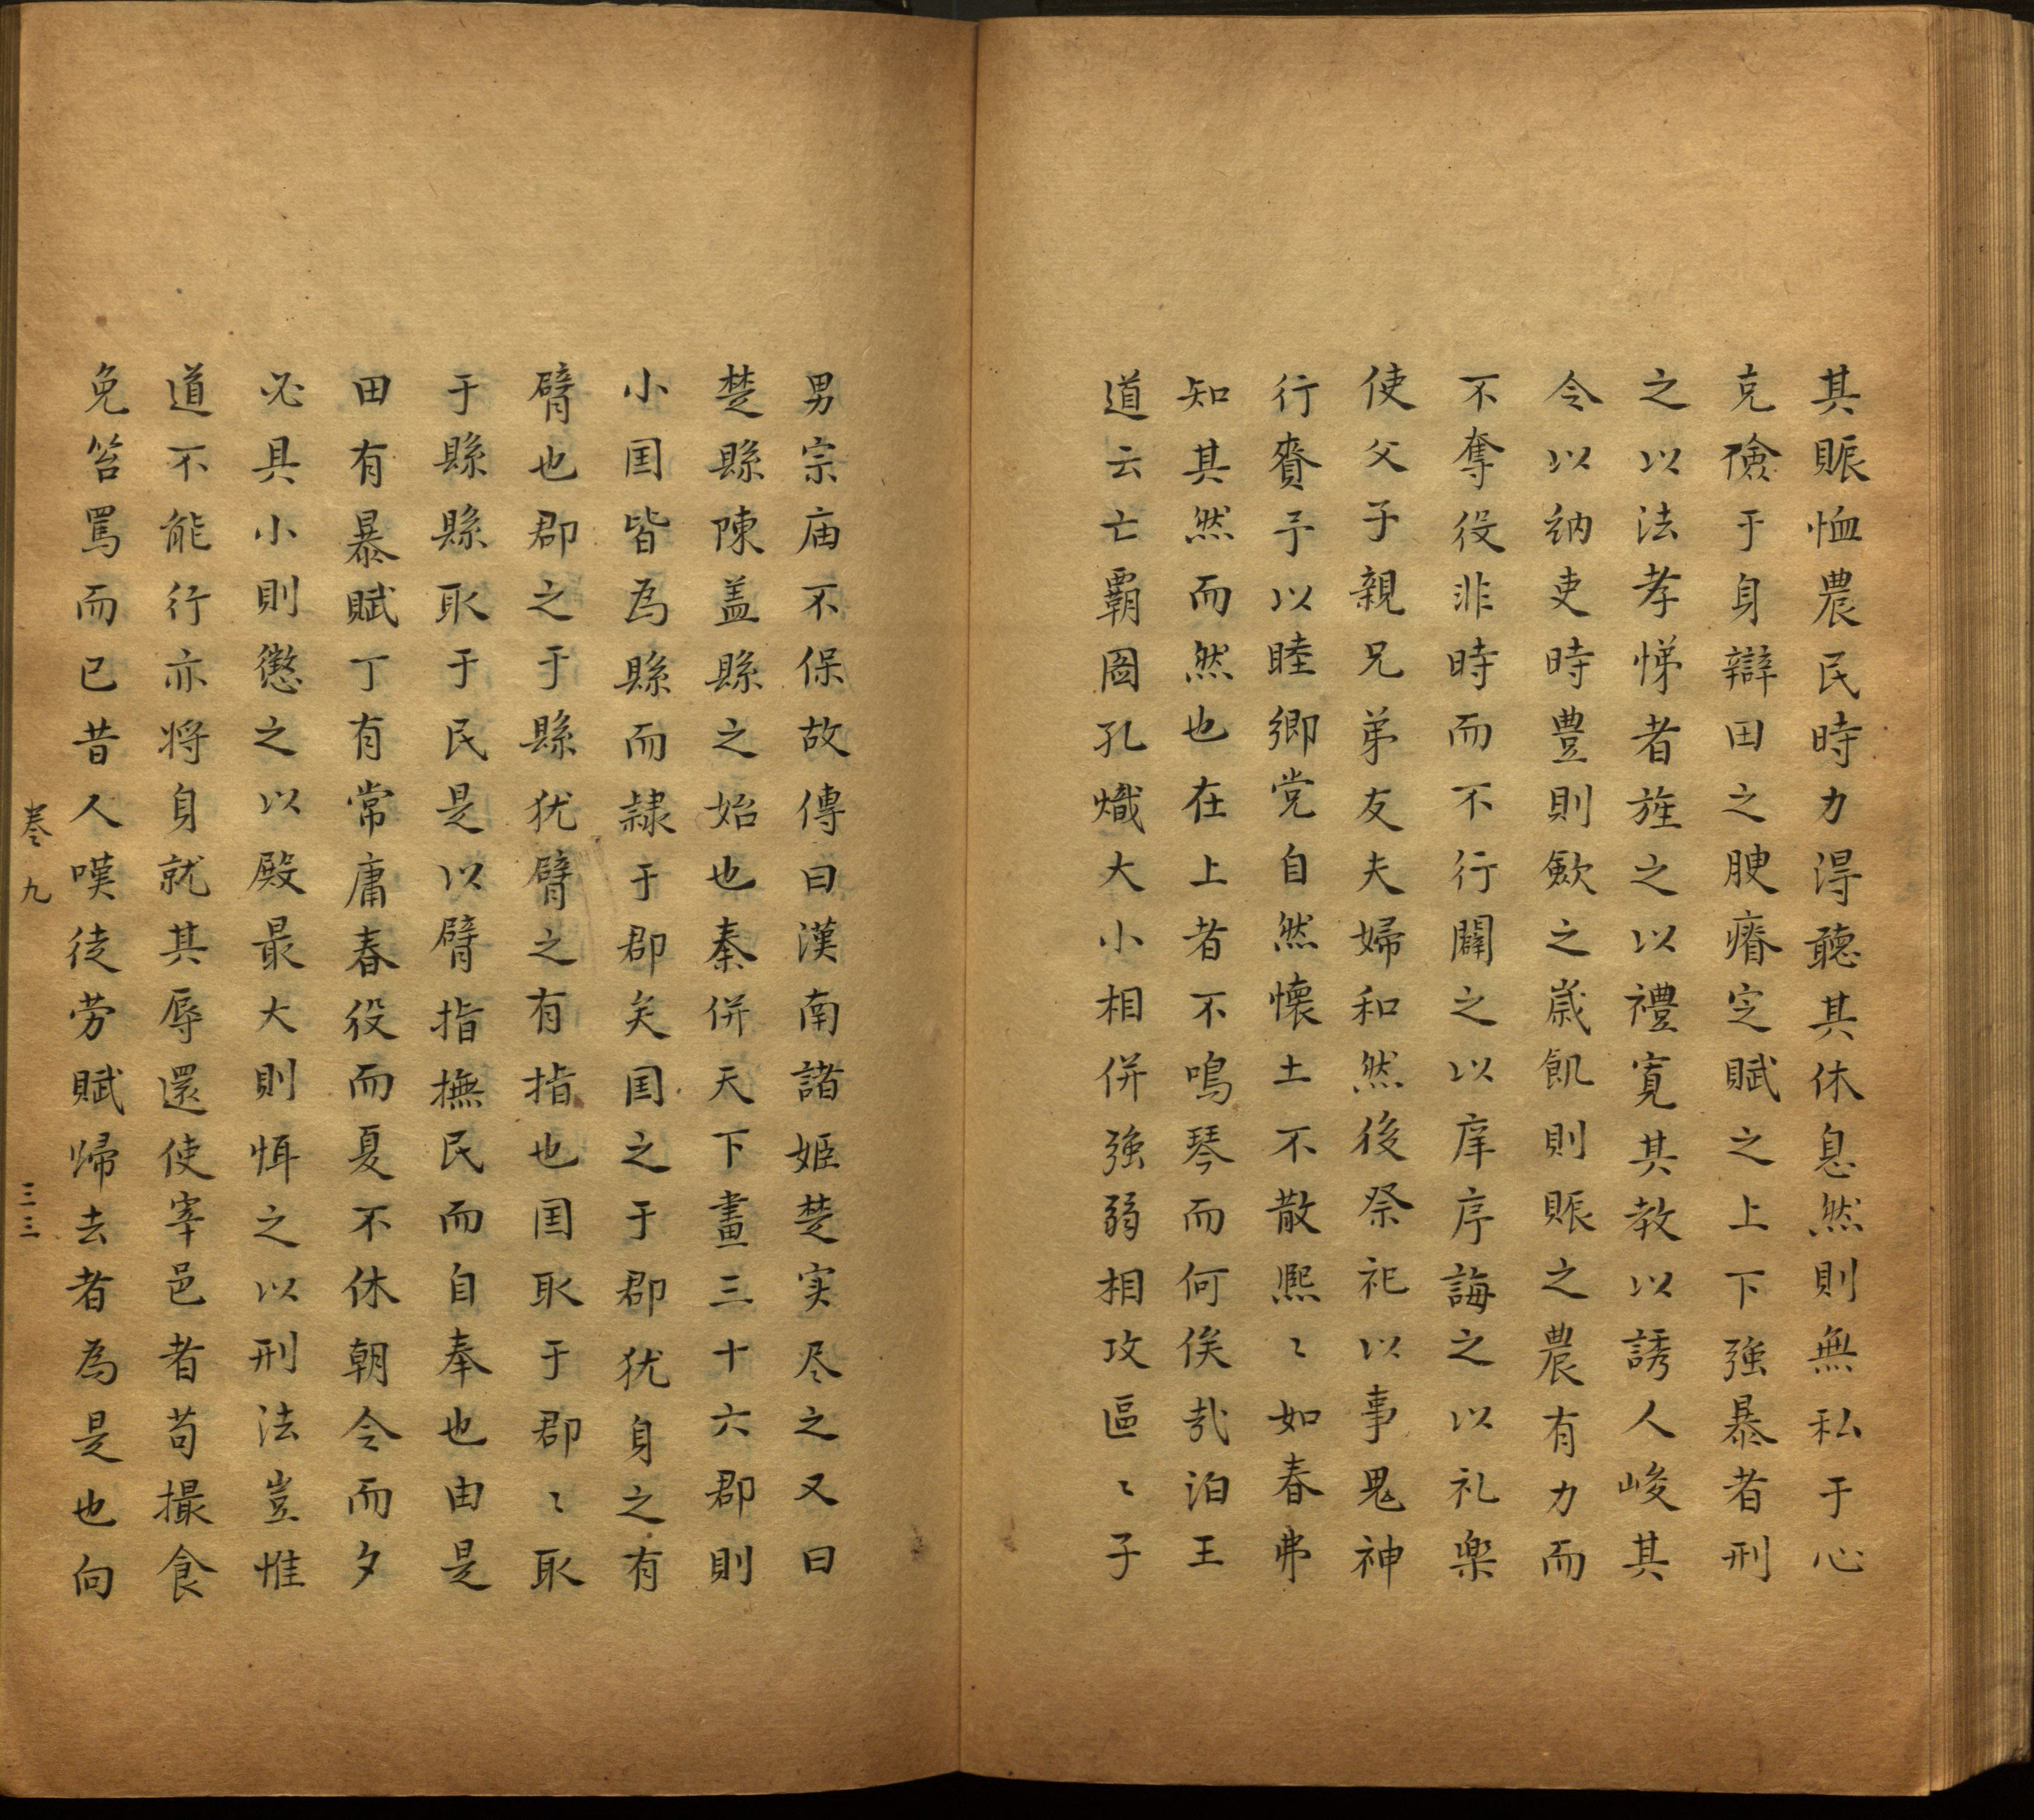 其賑恤農民時力得聽其休息然則無私于心
克儉于身辯田之腴瘠定賦之上下強暴者刑
之以法孝悌者旌之以禮寬其教以誘人峻其
令以納吏時豊則歛之嵗飢則賑之農有力而
不奪役非時而不行闢之以庠序誨之以礼楽
使父子親兄弟友夫婦和然後祭祀以事鬼神
行賚予以睦鄉党自然懐土不散熈〻如春弗
知其然而然也在上者不鳴琴而何俟哉洎王
道云亡覇圖孔熾大小相併強弱相攻區〻子
男宗庙不保故傳曰漢南諸姬楚实尽之又曰
楚縣陳盖縣之始也秦併天下畫三十六郡則
小囯皆為縣而隷于郡矣囯之于郡犹身之有
臂也郡之于縣犹臂之有指也囯取于郡〻取
于縣縣取于民是以臂指撫民而自奉也由是
田有暴賦丁有常庸春役而夏不休朝令而夕
必具小則懲之以殿最大則恒之以刑法豈惟
道不能行亦将身就其辱還使宰邑者苟撮食
免笞罵而已昔人嘆徒劳賦歸去者為是也向
巻九
三三